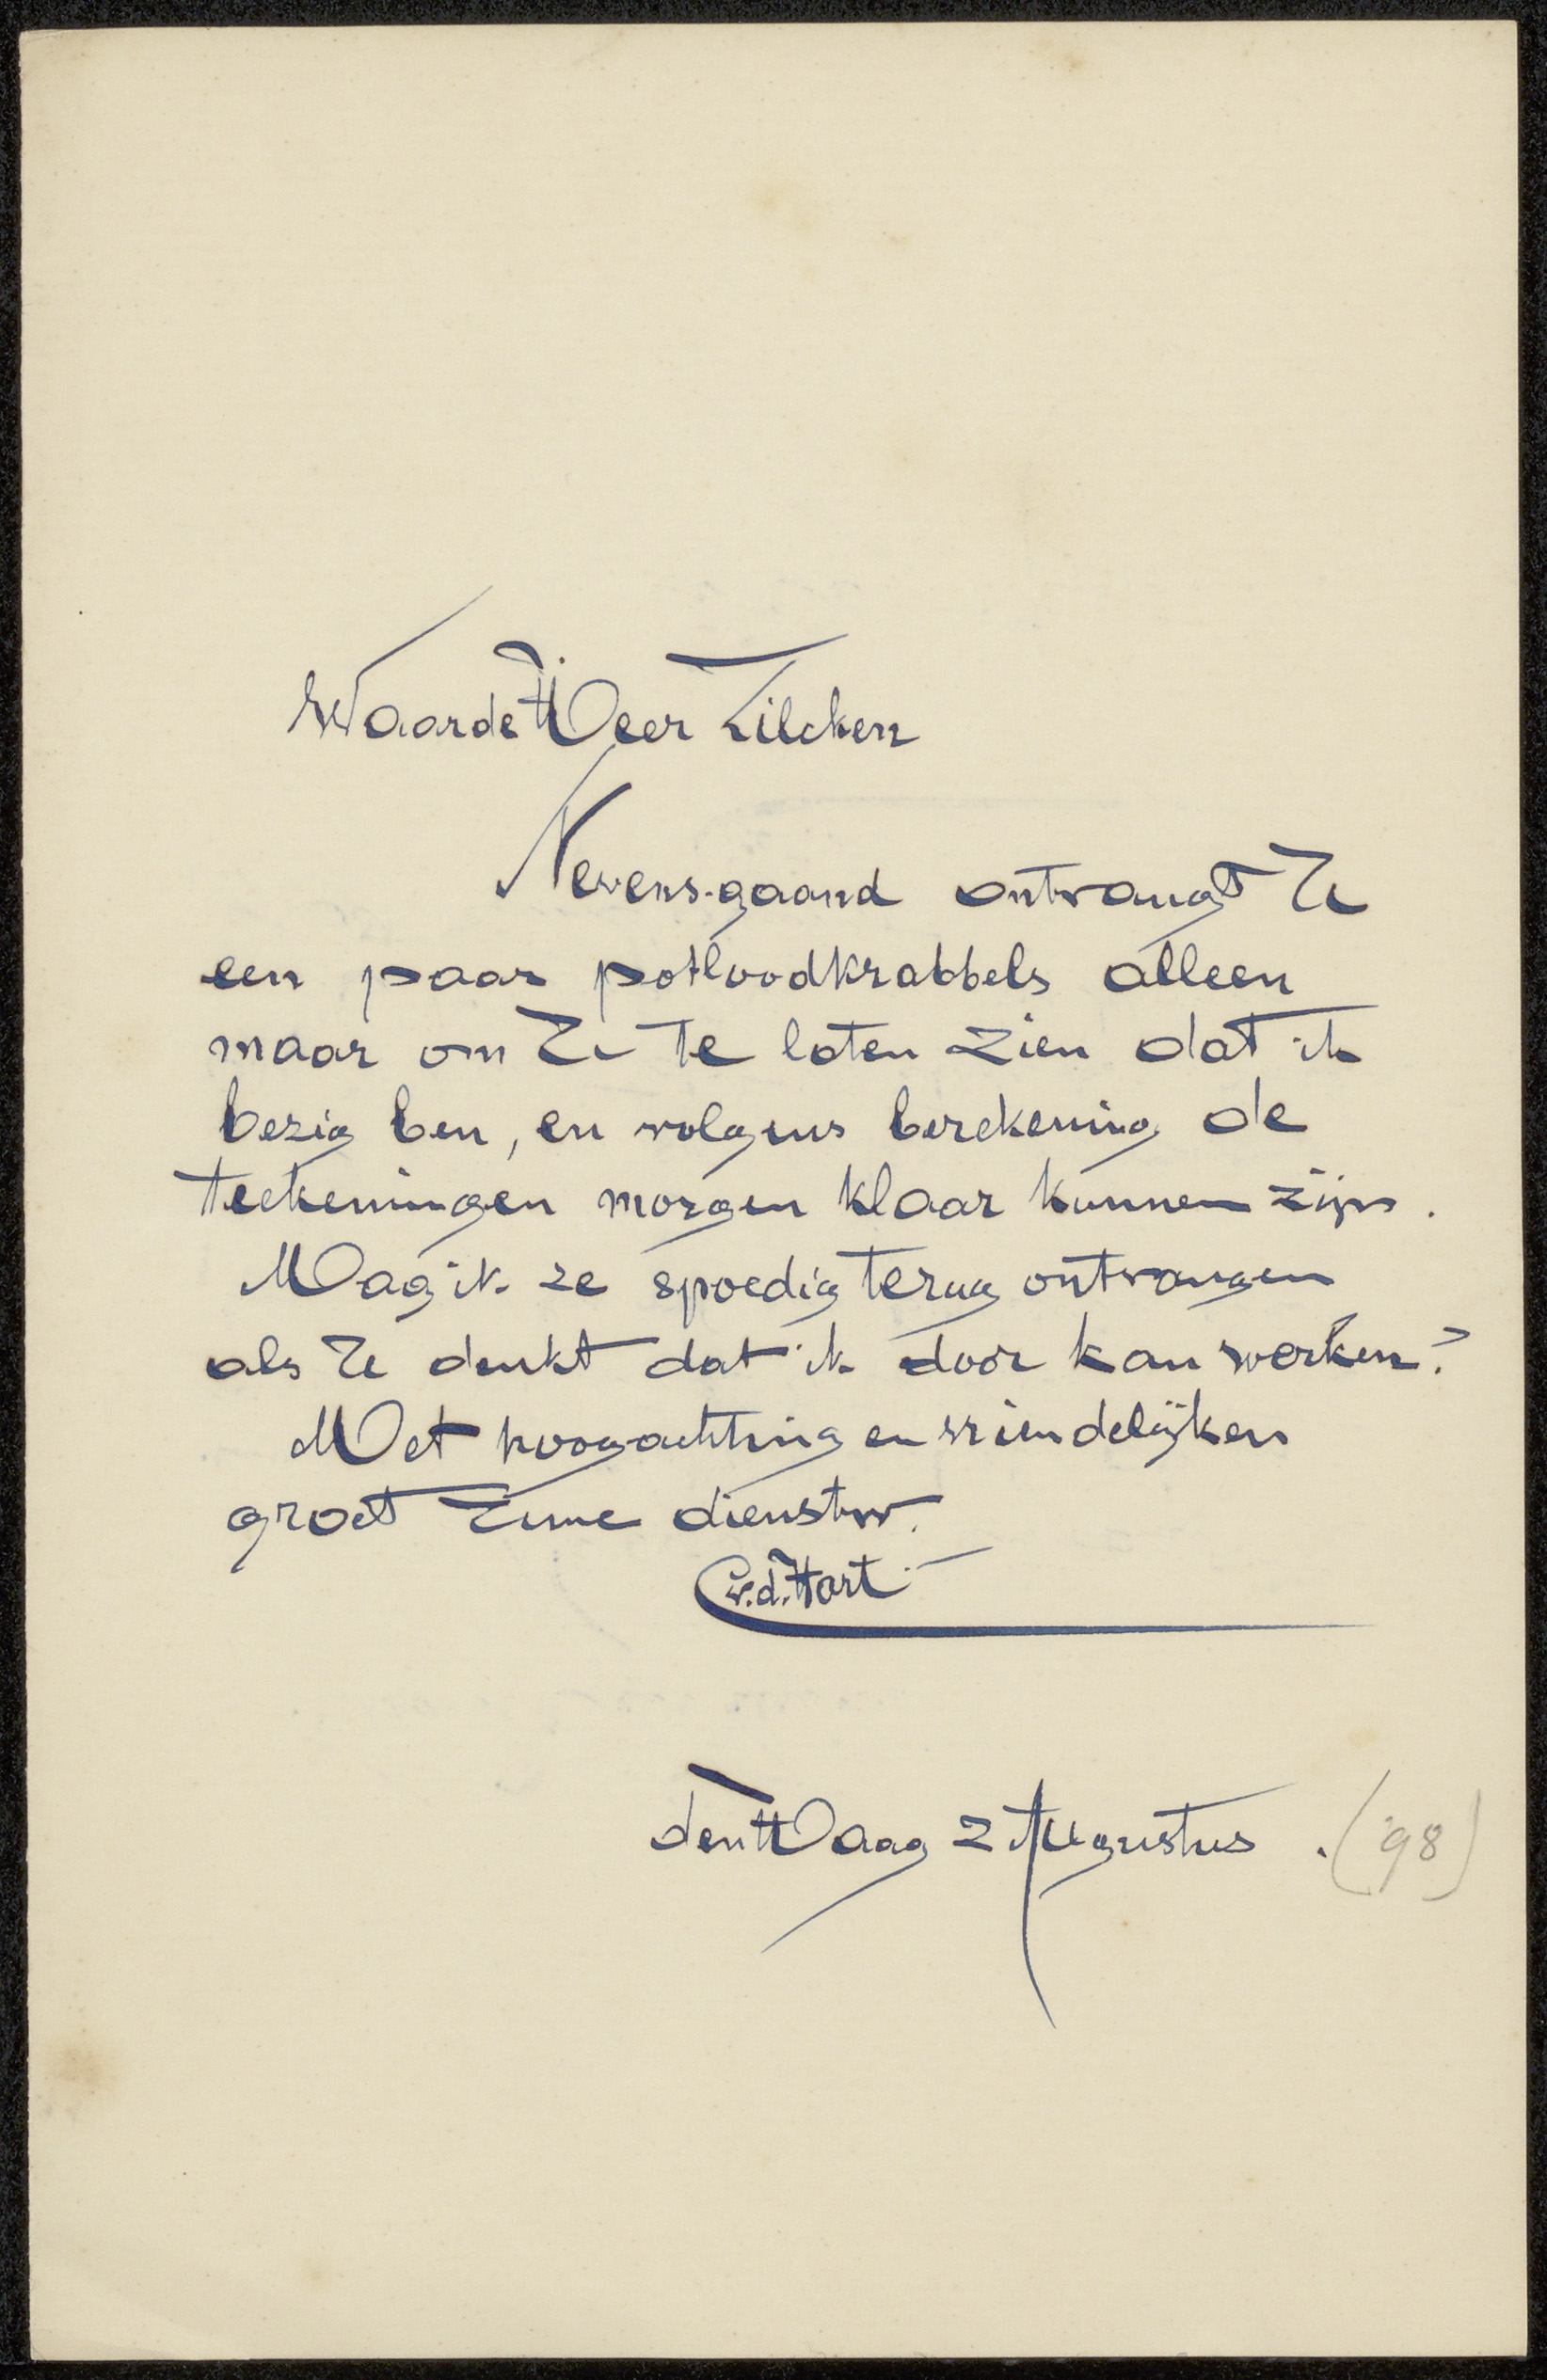 Waarde Heer Zilcken
Nevensgaand ontvangt U
een paar potloodkrabbels alleen
maar om U te laten zien dat ik
bezig ben, en volgens berekening de
teekeningen morgen klaar kunnen zijn.
Mag ik ze spoedig terug ontvangen
als U denkt dat ik door kan werken?
Met hoogachting en vriendelijken
groet Uwe dienstw.
C v.d. Hart
den Haag 2 Augustus. ('98)